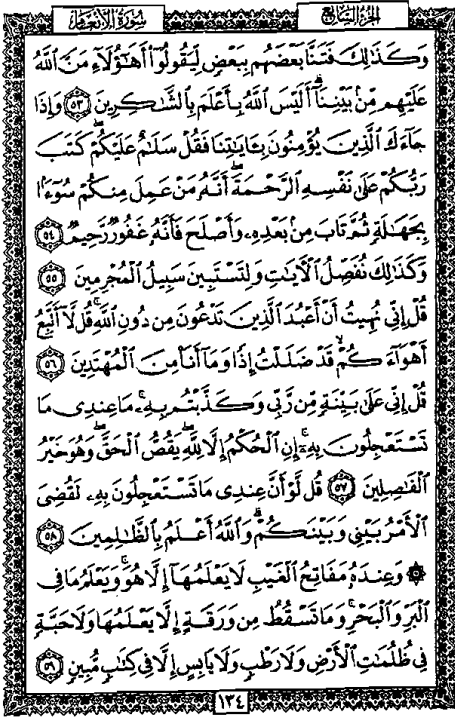 الجزء السابع
سورة الأنعام
وَكَذَٰلِكَ فَتَنَّا بَعْضَهُم بِبَعْضٍ لِّيَقُولُوٓا۟ أَهَٰٓؤُلَآءِ مَنَّ ٱللَّهُ
عَلَيْهِم مِّنۢ بَيْنِنَآ ۗ أَلَيْسَ ٱللَّهُ بِأَعْلَمَ بِٱلشَّٰكِرِينَ ٥٣ وَإِذَا
جَآءَكَ ٱلَّذِينَ يُؤْمِنُونَ بِـَٔايَٰتِنَا فَقُلْ سَلَٰمٌ عَلَيْكُمْ ۖ كَتَبَ
رَبُّكُمْ عَلَىٰ نَفْسِهِ ٱلرَّحْمَةَ ۖ أَنَّهُۥ مَنْ عَمِلَ مِنكُمْ سُوٓءًۢا
بِجَهَٰلَةٍ ثُمَّ تَابَ مِنۢ بَعْدِهِۦ وَأَصْلَحَ فَأَنَّهُۥ غَفُورٌ رَّحِيمٌ ٥٤
وَكَذَٰلِكَ نُفَصِّلُ ٱلْـَٔايَٰتِ وَلِتَسْتَبِينَ سَبِيلُ ٱلْمُجْرِمِينَ ٥٥
قُلْ إِنِّى نُهِيتُ أَنْ أَعْبُدَ ٱلَّذِينَ تَدْعُونَ مِن دُونِ ٱللَّهِ ۚ قُل لَّآ أَتَّبِعُ
أَهْوَآءَكُمْ ۙ قَدْ ضَلَلْتُ إِذًا وَمَآ أَنَا۠ مِنَ ٱلْمُهْتَدِينَ ٥٦
قُلْ إِنِّى عَلَىٰ بَيِّنَةٍ مِّن رَّبِّى وَكَذَّبْتُم بِهِۦ ۚ مَا عِندِى مَا
تَسْتَعْجِلُونَ بِهِۦٓ ۚ إِنِ ٱلْحُكْمُ إِلَّا لِلَّهِ ۖ يَقُصُّ ٱلْحَقَّ ۖ وَهُوَ خَيْرُ
ٱلْفَٰصِلِينَ ٥٧ قُل لَّوْ أَنَّ عِندِى مَا تَسْتَعْجِلُونَ بِهِۦ لَقُضِىَ
ٱلْأَمْرُ بَيْنِى وَبَيْنَكُمْ ۗ وَٱللَّهُ أَعْلَمُ بِٱلظَّٰلِمِينَ ٥٨
۞ وَعِندَهُۥ مَفَاتِحُ ٱلْغَيْبِ لَا يَعْلَمُهَآ إِلَّا هُوَ ۚ وَيَعْلَمُ مَا فِى
ٱلْبَرِّ وَٱلْبَحْرِ ۚ وَمَا تَسْقُطُ مِن وَرَقَةٍ إِلَّا يَعْلَمُهَا وَلَا حَبَّةٍ
فِى ظُلُمَٰتِ ٱلْأَرْضِ وَلَا رَطْبٍ وَلَا يَابِسٍ إِلَّا فِى كِتَٰبٍ مُّبِينٍ ٥٩
١٣٤